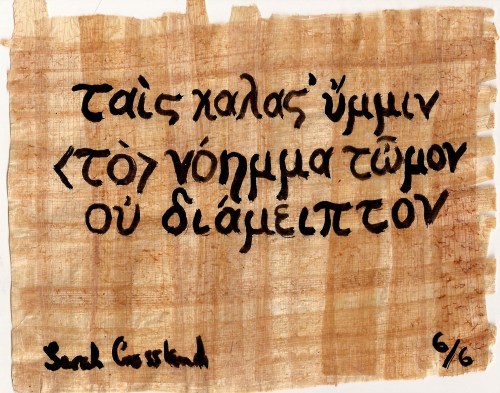 ταὶς χαλας᾽ ὔμμιν
<τὸ> νόημμα τῶμον
οὐ διάμειπτον
Sarah Crossland 6/6